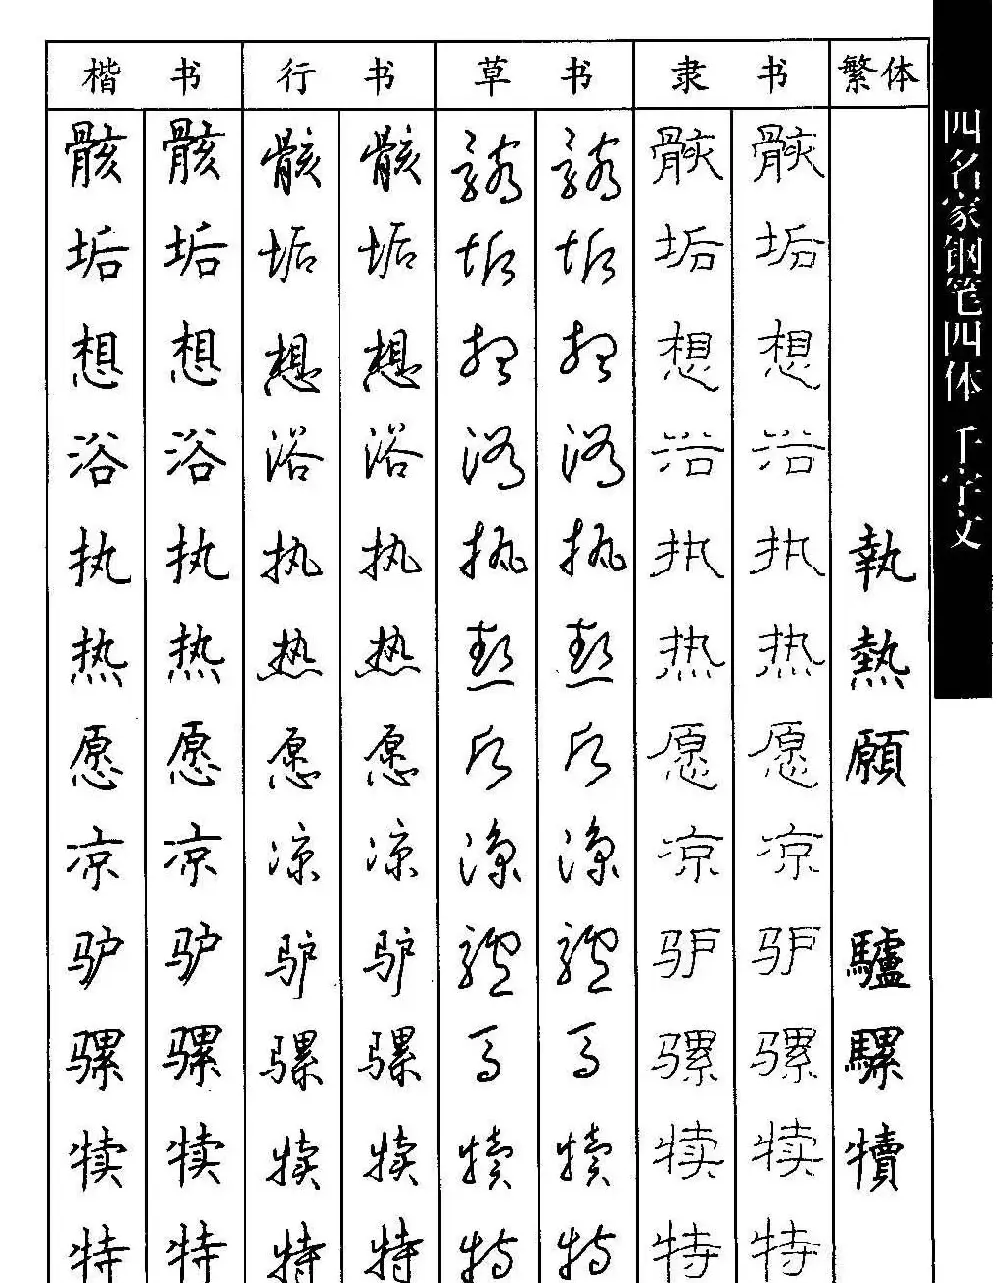 楷书 行书 草书 隶书 繁体
骸 骸 骸 骸 骸 骸 骸 骸
垢 垢 垢 垢 垢 垢 垢 垢
想 想 想 想 想 想 想 想
浴 浴 浴 浴 浴 浴 浴 浴
执 执 执 执 执 执 执 执 執
热 热 热 热 热 热 热 热 熱
愿 愿 愿 愿 愿 愿 愿 愿 願
凉 凉 凉 凉 凉 凉 凉 凉
驴 驴 驴 驴 驴 驴 驴 驴 驢
骡 骡 骡 骡 骡 骡 骡 骡 騾
犊 犊 犊 犊 犊 犊 犊 犊 犢
特 特 特 特 特 特 特 特
四名家钢笔四体 千字文